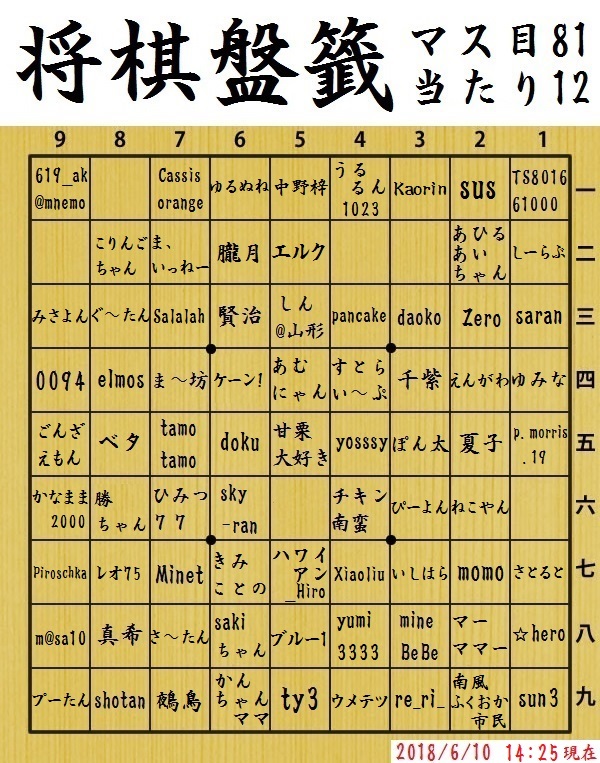 将棋盤籤
マス目81
当たり12
9 8 7 6 5 4 3 2 1
619_ak @mnemo Cassis orange ゆるぬね 中野梓 うるるん1023 Kaorin sus TS801661000 一
こりんごちゃん ま、いっねー 朧月 エルク あひるあいちゃん しーらぶ 二
みさよん ぐ～たん Salalah 賢治 しん@山形 pancake daoko Zero saran 三
0094 elmos ま～坊 ケーン! あむにゃん すとらい～ぷ 千紫 えんがわ ゆみな 四
ごんざえもん ベタ tamo tamo doku 甘栗大好き yosssy ぽん太 夏子 p.morris.19 五
かなまま2000 勝ちゃん ひみつ77 sky-ran チキン南蛮 ぴーよん ねこやん 六
Piroschka レオ75 Minet きみことの ハワイアン_Hiro Xiaoliu いしはら momo さとると 七
m@sa10 真希 さ～たん sakiちゃん ブルー1 yumi3333 mine BeBe マーママー ☆hero 八
プーたん shotan 鵺鳥 かんちゃんママ ty3 ウメテツ re_ri_ 南風ふくおか市民 sun3 九
2018/6/10 14:25現在